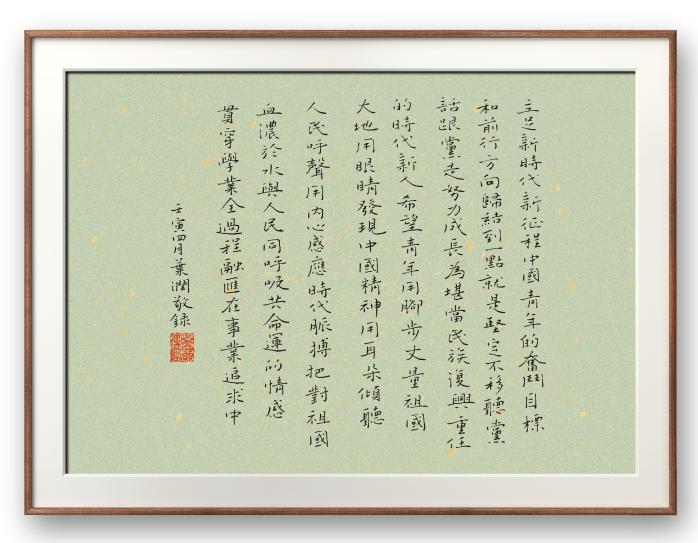 立足新時代新征程中國青年的奮鬥目標
和前行方向歸結到一點就是堅定不移聽黨
話跟黨走努力成長為堪當民族復興重任
的時代新人希望青年用腳步丈量祖國
大地用眼睛發現中國精神用耳朵傾聽
人民呼聲用内心感應時代脈搏把對祖國
血濃於水與人民同呼吸共命運的情感
貫穿學業全過程融匯在事業追求中
壬寅四月葉潤敬録